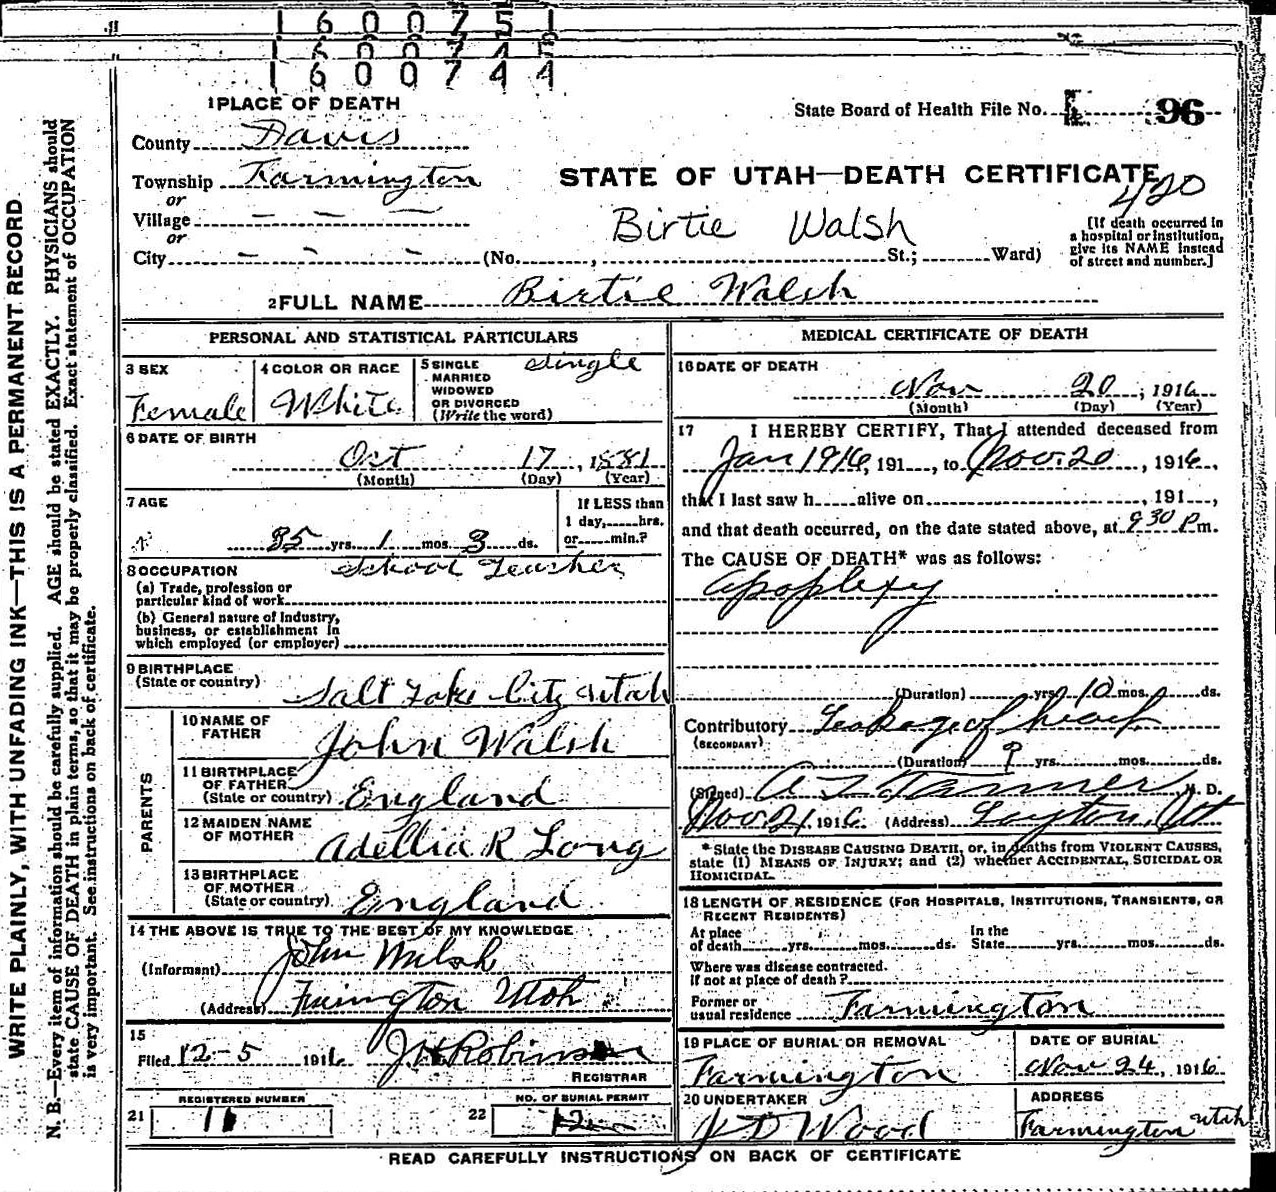 1600751
1600745
1600744
1 PLACE OF DEATH
State Board of Health File No. 96
County Davis
Township Farmington
STATE OF UTAH—DEATH CERTIFICATE
or
420
Village — — —
Birtie Walsh
or
City - - - (No. , St.; Ward)
[If death occurred in
a hospital or institution,
give its NAME instead
of street and number.]
2 FULL NAME Birtie Walsh
PERSONAL AND STATISTICAL PARTICULARS
3 SEX
Female
4 COLOR OR RACE
White
5 SINGLE
MARRIED
WIDOWED
OR DIVORCED
(Write the word)
Single
6 DATE OF BIRTH
Oct 17, 1881
(Month) (Day) (Year)
7 AGE
35 yrs. 1 mos. 3 ds.
If LESS than
1 day, hrs.
or min.?
8 OCCUPATION School Teacher
(a) Trade, profession or
particular kind of work
(b) General nature of industry,
business, or establishment in
which employed (or employer)
9 BIRTHPLACE
(State or country)
Salt Lake City Utah
PARENTS
10 NAME OF
FATHER
John Walsh
11 BIRTHPLACE
OF FATHER
(State or country) England
12 MAIDEN NAME
OF MOTHER
Adellia R Long
13 BIRTHPLACE
OF MOTHER
(State or country) England
14 THE ABOVE IS TRUE TO THE BEST OF MY KNOWLEDGE
(Informant) John Walsh
(Address) Farmington Utah
15
Filed 12-5 1916 J H Robinson
REGISTRAR
REGISTERED NUMBER
21 11
NO. OF BURIAL PERMIT
22 12
MEDICAL CERTIFICATE OF DEATH
16 DATE OF DEATH
Nov 20, 1916
(Month) (Day) (Year)
17 I HEREBY CERTIFY, That I attended deceased from
Jan 1916, 191 , to Nov. 20, 1916,
that I last saw h alive on , 191 ,
and that death occurred, on the date stated above, at 9 30 P m.
The CAUSE OF DEATH* was as follows:
Apoplexy
(Duration) yrs. 10 mos. ds.
Contributory Leakage of heart
(SECONDARY)
(Duration) ? yrs. mos. ds.
(Signed) A Z Tanner M. D.
Nov. 21 1916 (Address) Layton, Ut
* State the DISEASE CAUSING DEATH, or, in deaths from VIOLENT CAUSES,
state (1) MEANS OF INJURY; and (2) whether ACCIDENTAL, SUICIDAL OR
HOMICIDAL.
18 LENGTH OF RESIDENCE (FOR HOSPITALS, INSTITUTIONS, TRANSIENTS, OR
RECENT RESIDENTS)
At place
of death yrs. mos. ds.
In the
State yrs. mos. ds.
Where was disease contracted.
If not at place of death?
Former or
usual residence Farmington
19 PLACE OF BURIAL OR REMOVAL
Farmington
DATE OF BURIAL
Nov 24, 1916
20 UNDERTAKER
J D Wood
ADDRESS
Farmington Utah
READ CAREFULLY INSTRUCTIONS ON BACK OF CERTIFICATE
WRITE PLAINLY, WITH UNFADING INK—THIS IS A PERMANENT RECORD
N. B.—Every item of information should be carefully supplied. AGE should be stated EXACTLY. PHYSICIANS should
state CAUSE OF DEATH in plain terms, so that it may be properly classified. Exact statement of OCCUPATION
is very important. See instructions on back of certificate.